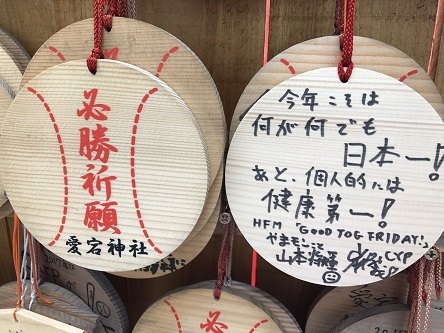 必勝祈願
愛宕神社
今年こそは
何が何でも
日本一!
あと、個人的には
健康第一!
HFM "GOOD JOG FRIDAY!"
やまもー
山本
CYP
必